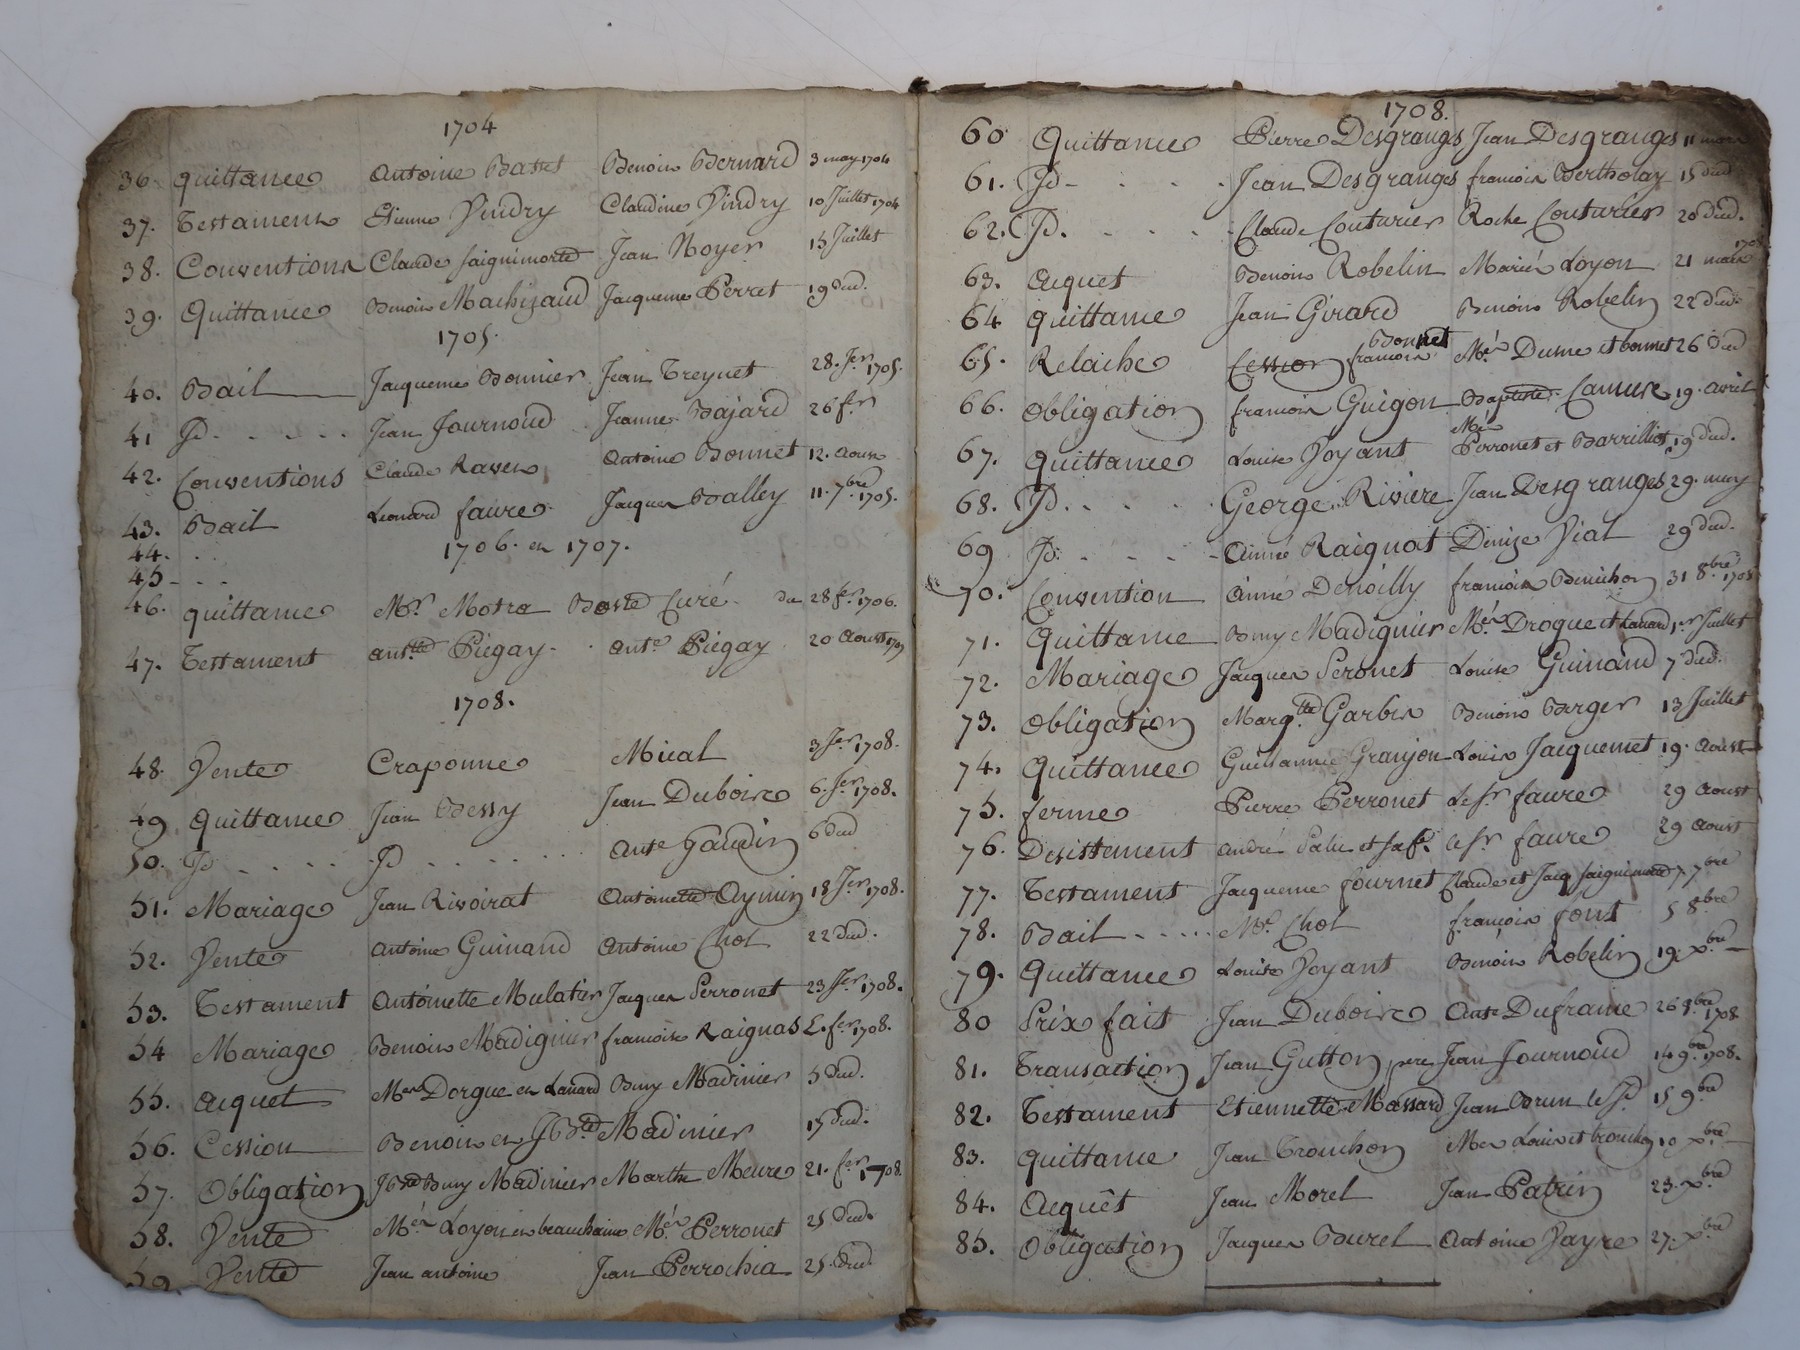 1704
36. quittance Antoine Basset Benois Bernard 3 may 1704
37. Testament Etienne Vindry Claudine Vindry 10 Juillet 1704
38. Conventions Claude saignimorte Jean Noyer 15 Juillet
39. Quittance Benois Machizaud Jacqueme Perret 19 dud.
1705.
40. Bail Jacqueme Bonnier Jean Treynet 28. Jer 1705.
41 Jd. - - - - Jean Journoud Jeanne Bajard 26 fer
42. Conventions Claude Raven Antoine Bonnet 12. Aoust
43. Bail Leonard faure Jacques Balley 11. 7bre 1705.
44. . . 1706. et 1707.
45 - . .
46. quittance Mr. Motra Curé. du 28 fer 1706.
47. Testament antte Piegay. antc Piegay 20 Aoust 1707
1708.
48. Vente Craponne Mical 3 Jer 1708.
49 Quittance Jean Bessy Jean Duboire 6. Jer 1708.
50. Jd - . . . . Jd . . . . . . . Antc Gaudin 6 dud
51. Mariage Jean Rivoirat Antoinette Aynin 18 Jer 1708.
52. Vente Antoine Guinand Antoine Chol 22 dud.
53. Testament Antoinette Mulatier Jacques Perronet 23 Jer 1708.
54 Mariage Benois Madignier francoise Raignas 2. fer 1708.
55. acquet Mes Dorgue et Lanard Bmy Madinier 5 dud.
56. Cession Benois et Jbte Madinier 15 dud.
57. Obligation Jbte Bmy Madinier Marthe Meure 21. fer 1708.
58. Vente Més Loyon et beauchaine Més Perronet 25 dud.
59 Vente Jean antoine Jean Perrochia 25. dud.
1708.
60 Quittance Pierre Desgranges Jean Desgranges 11 mars
61. Jd - . . . - Jean Desgranges francois Bertholay 15 dud
62. Jd. . . . . Claude Couturier Roche Couturier 20 dud.
63. acquet Benois Robelin Mariés Loyon 21 mars 1708
64 quittance Jean Girard Benois Robelin 22 dud.
65. Relache Cession francois Bonnet Més Dume et bonnet 26 dud
66. Obligation francois Guigon Baptiste Camus 19. avril
67. quittance Louise Voyant Més Perronet et Barrilliot 19 dud.
68. Jd. . . . . George Riviere Jean Desgranges 29. may
69 Jd. - - - - Aimée Raignat Denize Vial 29 dud.
70. Convention Aimé Denoilly francois Benichon 31 8bre 1708
71. Quittance Bmy Madignier Més Drogue et Lanard 1er Juillet
72. Mariage Jacques Peronet Louise Guinand 7 dud.
73. Obligation Margtte Garbes Benois Berger 13 Juillet
74. Quittance Guillaume Granjon Louis Jacquemet 19. Aoust
75. ferme Pierre Perronet Le sr faure 29 Aoust
76. Desistement André Palu et sa fe le sr faure 29 Aoust
77. Testament Jacqueme fournet Claude et Jacq saignimorte 7 7bre
78. Bail - . . . . Mr. Chol françois font 5 8bre
79. Quittance Louise Voyant Benois Robelin 19. xbre
80 Prix fait Jean Duboire Antc Dufraine 26 9bre 1708
81. Transaction Jean Gutton pere Jean Journoud 14 9bre 1708.
82. Testament Etiennette Massard Jean Brun le Jd. 15 9bre
83. quittance Jean Tronchon Mes Louis et tronchon 10 xbre
84. Acquêt Jean Morel Jean Patrin 23. xbre
85. Obligation Jacques Burel Antoine Vayre 27. xbre